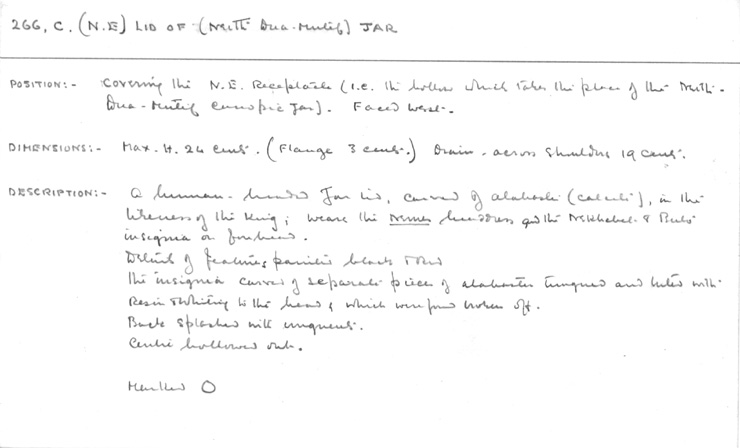 266, C. (N.E) LID OF (Neith Dua-Mutef) JAR
POSITION:- Covering the N.E. Receptacle (i.e. the hollow which takes the place of the Neith-
Dua-Mutef canopic Jar). Faced West.
DIMENSIONS:- Max. H. 24 cents. (Flange 3 cents.) Diam. across shoulders 19 cents.
DESCRIPTION:- A human-headed Jar lid, carved of alabaster (calcite), in the
likeness of the King; wears the Nemes headdress and the Nekhebet & Buto
insignia on forehead.
Details of features painted black
The insignia carved of separate pieces of alabaster tongued and luted with
Resin & whiting to the head, which were found broken off.
Back splashed with unguent.
Centre hollowed out.
Marked O